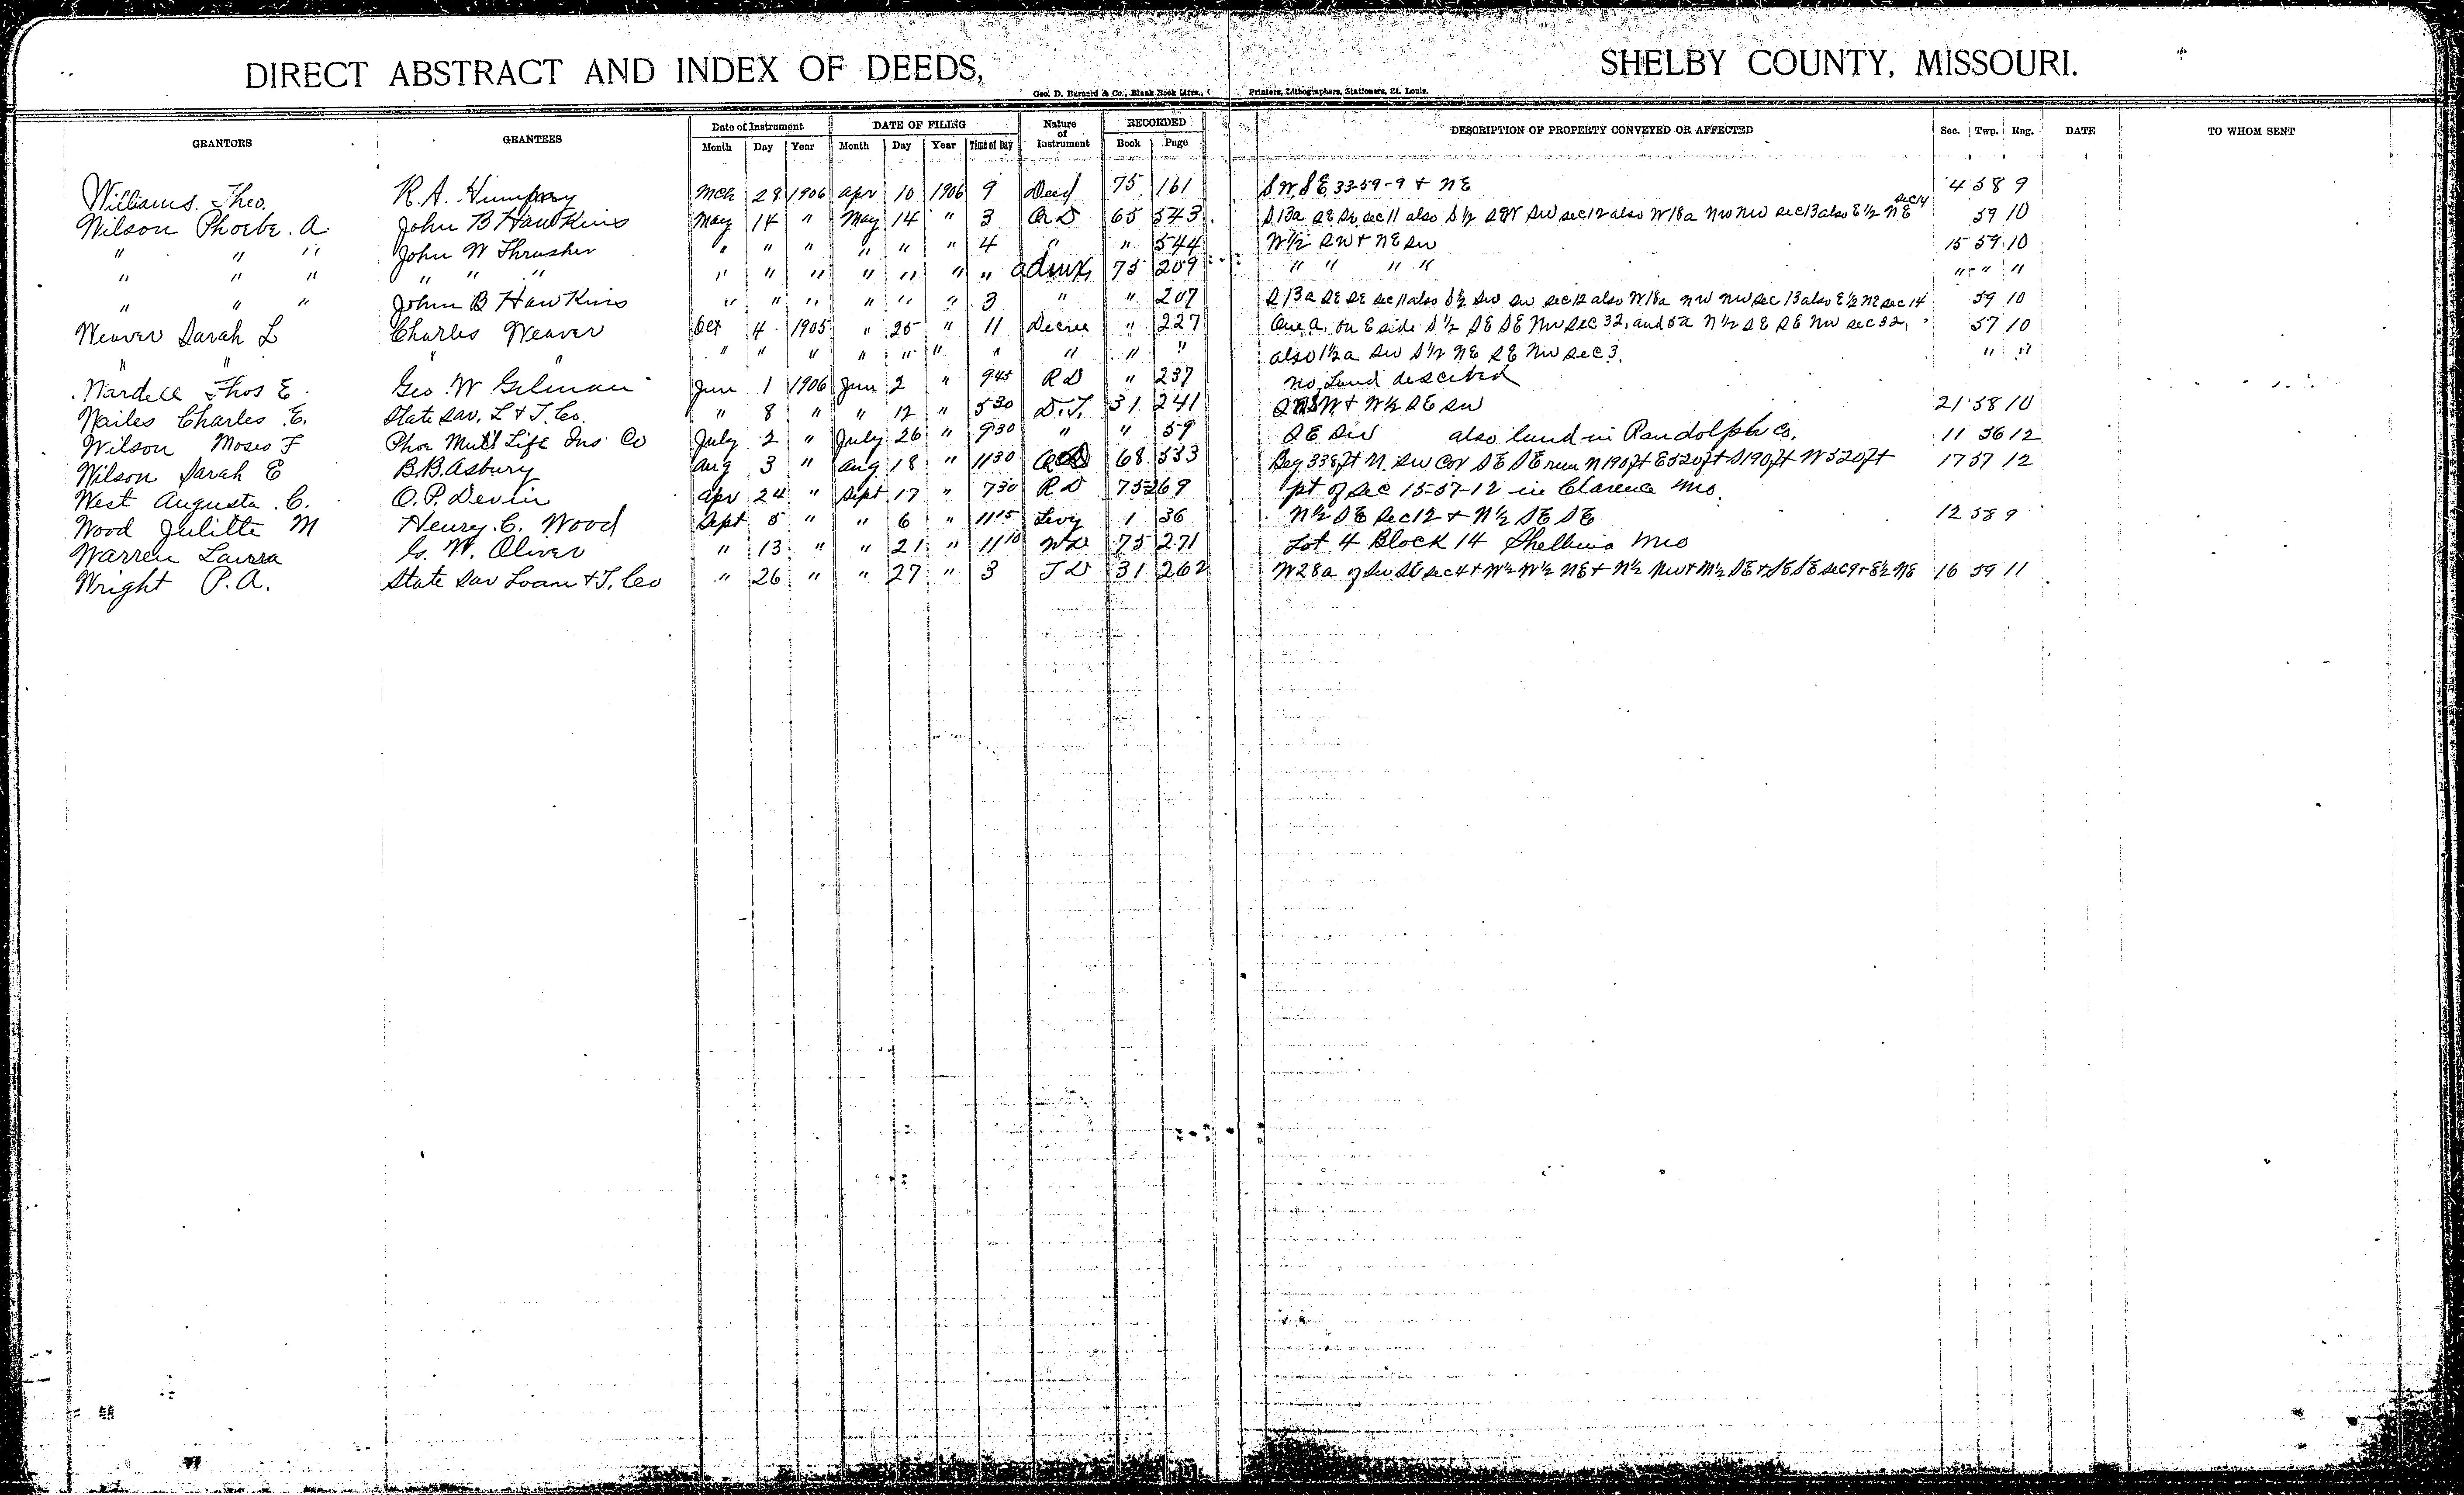 DIRECT ABSTRACT AND INDEX OF DEEDS, SHELBY COUNTY, MISSOURI.
Geo. D. Barnard & Co., Blank Book Mfrs., Printers, Lithographers, Stationers, St. Louis.
GRANTORS GRANTEES Date of Instrument DATE OF FILING Nature of Instrument RECORDED DESCRIPTION OF PROPERTY CONVEYED OR AFFECTED Sec. Twp. Rng. DATE TO WHOM SENT
Month Day Year Month Day Year Time of Day Book Page
Williams. Theo. R.A. Humphrey Mch 28 1906 Apr 10 1906 9 Deed 75 161 S W S E 33-59-9 + NE 4 58 9
Wilson Phoebe. A. John B Hawkins May 14 " May 14 " 3 QD 65 543 S 13a SE SE sec 11 also S 1/2 SW SW sec 12 also W 18a NW NW sec 13 also E 1/2 NE sec 14 59 10
" " " John W Thrasher " " " " " " 4 " " 544 W 1/2 SW + NE SW 15 59 10
" " " " " " " " " " " " " Admx 75 209 " " " " " " "
" " " John B Hawkins " " " " " " 3 " " 207 S 13a SE SE sec 11 also S 1/2 SW SW sec 12 also W 18a NW NW sec 13 also E 1/2 NE sec 14 59 10
Weaver Sarah L Charles Weaver Oct 4 1905 " 25 " 11 Decree " 227 One a. on E side S 1/2 SE SE NW Sec 32, and 5a N 1/2 SE SE NW sec 32, 57 10
" " " " " " " " " " " " " " also 1 1/2 a SW S 1/2 NE SE NW Sec 3. " "
Wardell Thos E. Geo. W Gilman June 1 1906 June 2 " 9 45 RD " 237 no land described
Wailes Charles E. State Sav. L & T. Co. " 8 " " 12 " 5 30 D.T. 31 241 SW + W 1/2 SE SW 21 58 10
Wilson Moses F Phoe Mut'l Life Ins Co July 2 " July 26 " 9 30 " " 59 SE SW also land in Randolph Co. 11 56 12
Wilson Sarah E B.B. Asbury Aug 3 " Aug 18 " 11 30 QD 68 533 Beg 338 ft N. SW Cor SE SE run N 190 ft E 520 ft S 190 ft W 520 ft 17 57 12
West Augusta. C. O.P. Devin Apr 24 " Sept 17 " 7 30 RD 75 269 pt of Sec 15-57-12 in Clarence Mo.
Wood Julitte M Henry. C. Wood Sept 5 " " 6 " 11 15 Levy 1 36 N 1/2 SE Sec 12 + N 1/2 SE SE 12 58 9
Warren Laura G. W. Oliver " 13 " " 21 " 11 10 WD 75 271 Lot 4 Block 14 Shelbina Mo
Wright P.A. State Sav Loan & T. Co " 26 " " 27 " 3 TD 31 262 W 28a of SW SE sec 4 + W 1/2 W 1/2 NE + N 1/2 NW + N 1/2 SE + SE SE sec 9 + E 1/2 NE 16 59 11